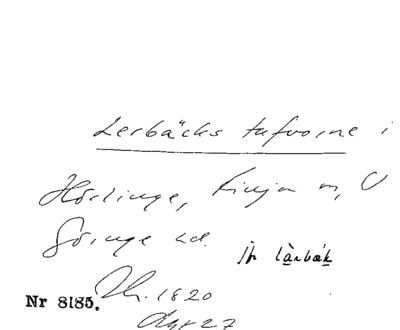 Lerbäcks tufvorne i
Hörlinge, Finja sn, V
Göinge hd.
jfr lärbäk
Nr 8185.
Dh. 1820
Akt 27